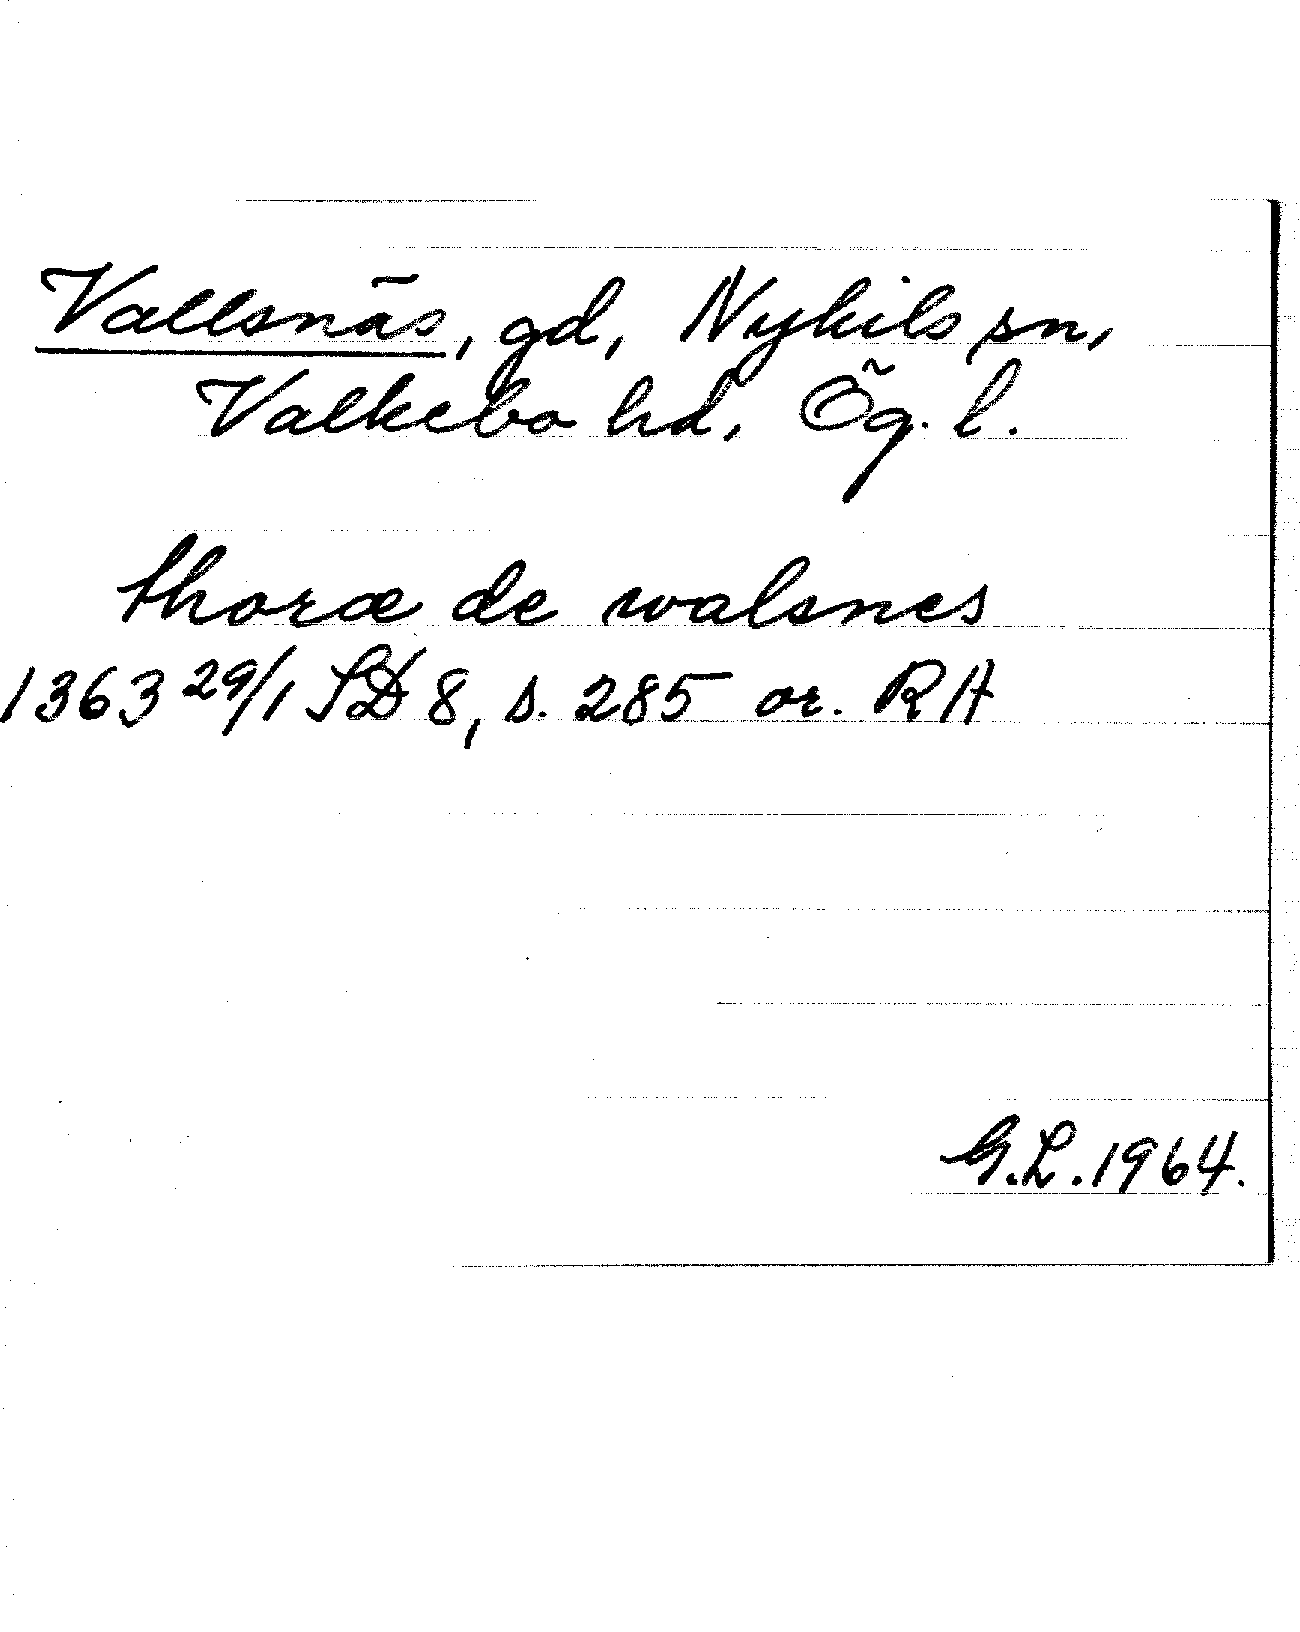 Vallsnäs, gd, Nykils sn,
Valkebo hd, Ög. l.
thoræ de walsnes
1363 29/1 SD 8, s. 285 or. RA
G.L. 1964.